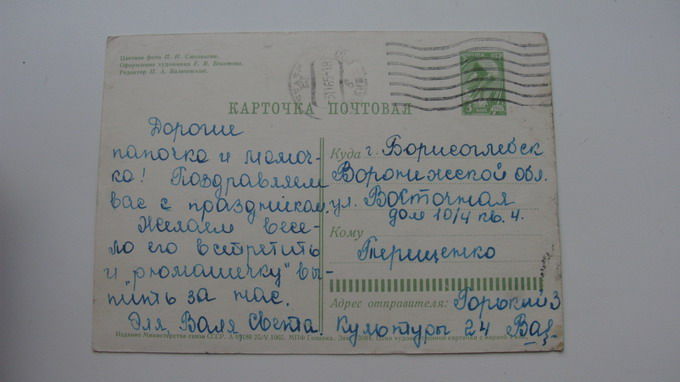 Цветное фото
Оформление художника
Редактор
КАРТОЧКА ПОЧТОВАЯ
Дорогие
папочка и мамоч-
ка! Поздравляем
вас с праздником.
Желаем весе-
ло его встретить
и "рюмашечку" вы-
пить за нас.
Эля, Валя, Света.
Куда г. Борисоглебск
Воронежской обл.
ул. Восточная
дом 10/4 кв. 4.
Кому
Терещенко
Адрес отправителя: Горький 3
Культуры 24
Издание Министерства связи СССР.